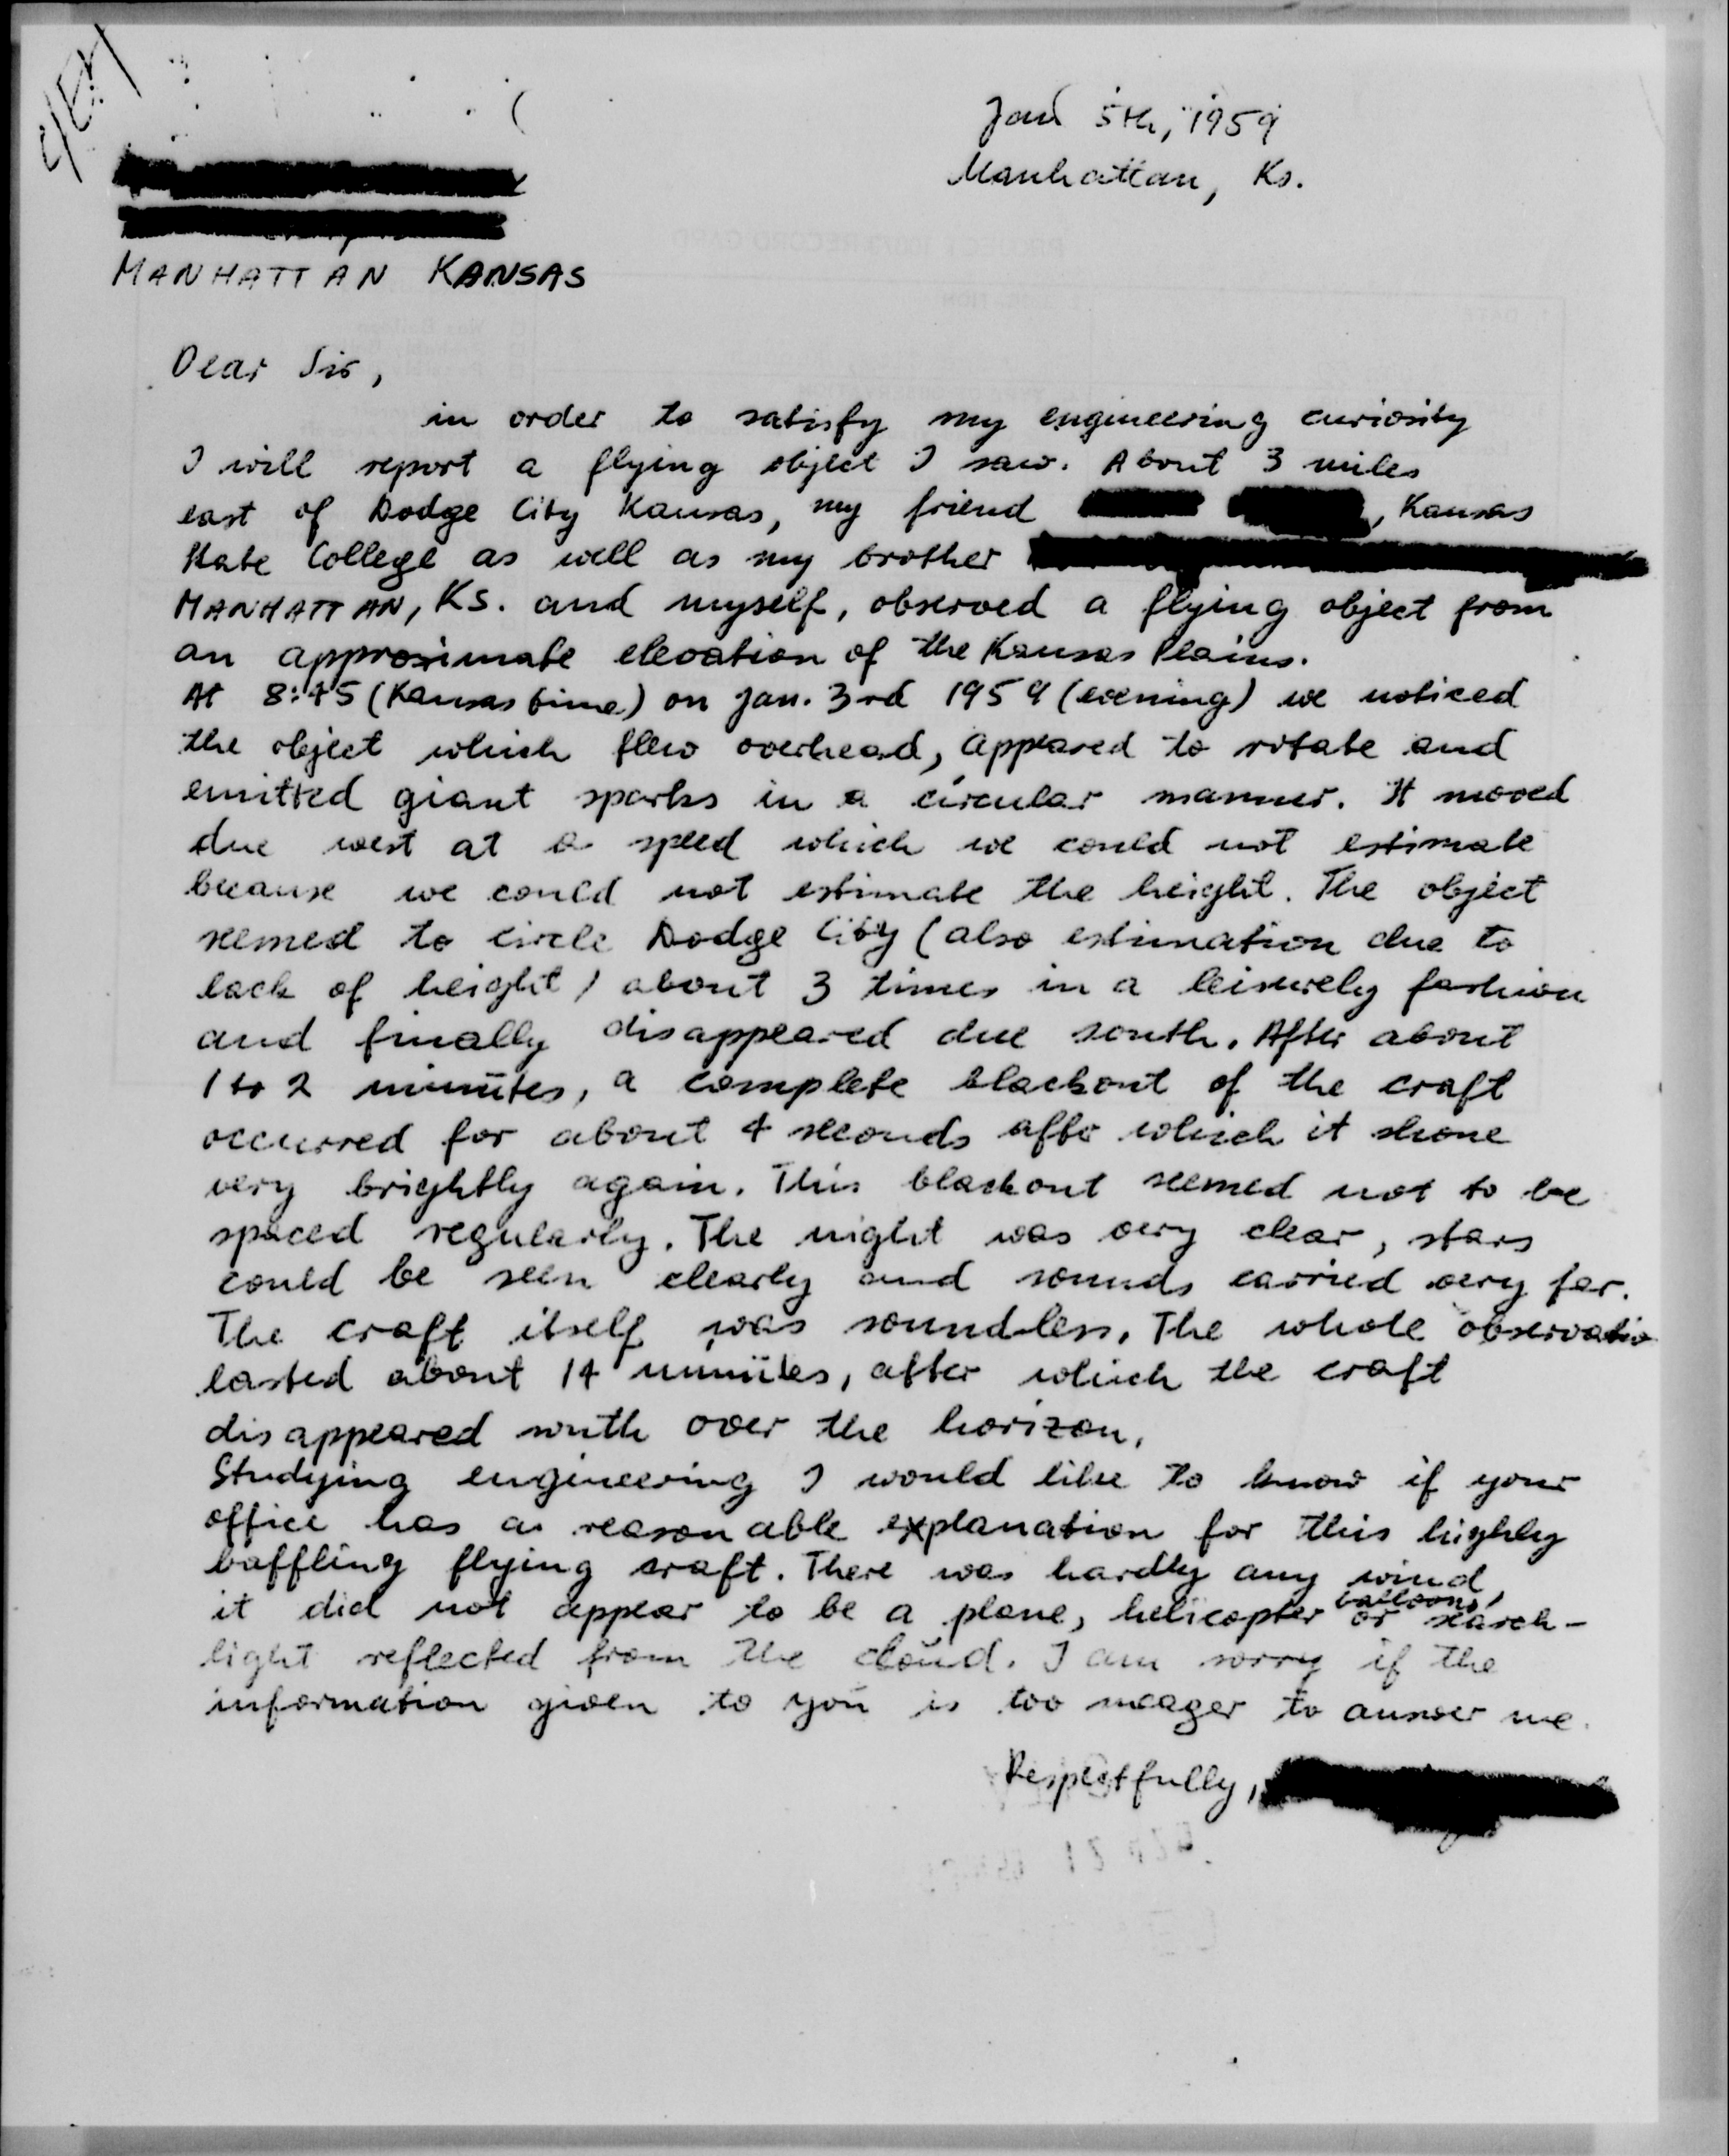 Jan 5th, 1959
Manhattan, Ks.
MANHATTAN KANSAS
Dear Sir,
in order to satisfy my engineering curiosity
I will report a flying object I saw. About 3 miles
east of Dodge City Kansas, my friend , Kansas
State College as well as my brother
MANHATTAN, KS. and myself, observed a flying object from
an approximate elevation of the Kansas Plains.
At 8:45 (Kansas time) on Jan. 3rd 1959 (evening) we noticed
the object which flew overhead, appeared to rotate and
emitted giant sparks in a circular manner. It moved
due west at a speed which we could not estimate
because we could not estimate the height. The object
seemed to circle Dodge City (also estimation due to
lack of height) about 3 times in a leisurely fashion
and finally disappeared due south. After about
1 to 2 minutes, a complete blackout of the craft
occurred for about 4 seconds after which it shone
very brightly again. This blackout seemed not to be
spaced regularly. The night was very clear, stars
could be seen clearly and sounds carried very far.
The craft itself was soundless. The whole observatio
lasted about 14 minutes, after which the craft
disappeared south over the horizon.
Studying engineering I would like to know if your
office has a reasonable explanation for this highly
baffling flying craft. There was hardly any wind,
it did not appear to be a plane, helicopter balloons, or search-
light reflected from the cloud. I am sorry if the
information given to you is too meager to answer me.
Respectfully,